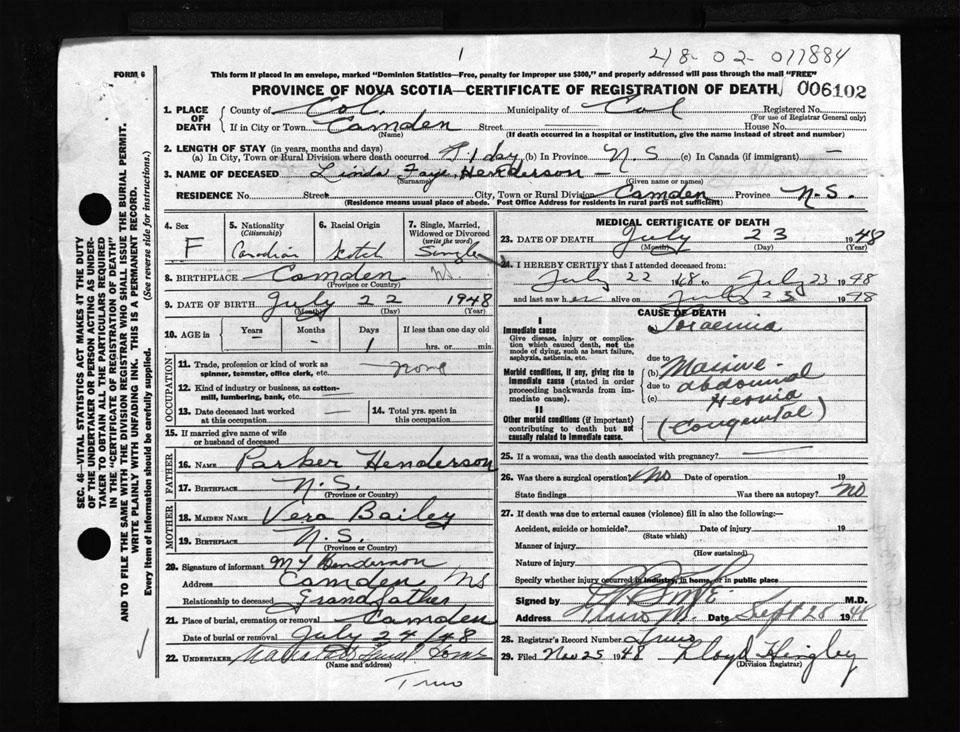 1
48-02-011884
FORM 6
This form if placed in an envelope, marked "Dominion Statistics—Free, penalty for improper use $300," and properly addressed will pass through the mail "FREE"
PROVINCE OF NOVA SCOTIA—CERTIFICATE OF REGISTRATION OF DEATH. 006102
SEC. 46—VITAL STATISTICS ACT MAKES IT THE DUTY
OF THE UNDERTAKER OR PERSON ACTING AS UNDER-
TAKER TO OBTAIN ALL THE PARTICULARS REQUIRED
IN THE "CERTIFICATE OF REGISTRATION OF DEATH"
AND TO FILE THE SAME WITH THE DIVISION REGISTRAR WHO SHALL ISSUE THE BURIAL PERMIT.
WRITE PLAINLY WITH UNFADING INK. THIS IS A PERMANENT RECORD.
Every item of information should be carefully supplied. (See reverse side for instructions.)
1. PLACE OF DEATH
County of Col. Municipality of Col Registered No.
(For use of Registrar General only)
If in City or Town Camden Street House No.
(Name) (If death occurred in a hospital or institution, give the name instead of street and number)
2. LENGTH OF STAY (in years, months and days)
(a) In City, Town or Rural Division where death occurred 1 day (b) In Province N.S (c) In Canada (if immigrant) —
3. NAME OF DECEASED Linda Faye Henderson —
(Surname) (Given name or names)
RESIDENCE No. Street City, Town or Rural Division Camden Province N.S.
(Residence means usual place of abode. Post Office Address for residents in rural parts not sufficient)
4. Sex
F
5. Nationality
(Citizenship)
Canadian
6. Racial Origin
Scotch
7. Single, Married,
Widowed or Divorced
(write the word)
Single
8. BIRTHPLACE Camden N.S.
(Province or Country)
9. DATE OF BIRTH July 22 1948
(Month) (Day) (Year)
10. AGE in Years — Months — Days 1 If less than one day old
hrs. or min.
OCCUPATION
11. Trade, profession or kind of work as
spinner, teamster, office clerk, etc. none
12. Kind of industry or business, as cotton-
mill, lumbering, bank, etc.
13. Date deceased last worked
at this occupation —
14. Total yrs. spent in
this occupation
15. If married give name of wife
or husband of deceased
FATHER
16. NAME Parker Henderson
17. BIRTHPLACE N.S.
(Province or Country)
MOTHER
18. MAIDEN NAME Vera Bailey
19. BIRTHPLACE N.S.
(Province or Country)
20. Signature of informant Henderson
Address Camden NS
Relationship to deceased Grandfather
21. Place of burial, cremation or removal Camden
Date of burial or removal July 24/48
22. UNDERTAKER
(Name and address)
Truro
MEDICAL CERTIFICATE OF DEATH
23. DATE OF DEATH July 23 1948
(Month) (Day) (Year)
24. I HEREBY CERTIFY that I attended deceased from:
July 22 1948 to July 23 1948
and last saw her alive on July 23 1948
CAUSE OF DEATH
I
Immediate cause
Give disease, injury or complica-
tion which caused death, not the
mode of dying, such as heart failure,
asphyxia, asthenia, etc.
due to
Morbid conditions, if any, giving rise to
immediate cause (stated in order
proceeding backwards from im-
mediate cause).
(b) Massive
due to abdominal
(c) Hernia
(Congenital)
II
Other morbid conditions (if important)
contributing to death but not
causally related to immediate cause.
25. If a woman, was the death associated with pregnancy? —
26. Was there a surgical operation? No Date of operation 19
State findings Was there an autopsy? NO
27. If death was due to external causes (violence) fill in also the following:—
Accident, suicide or homicide? Date of injury 19
(State which)
Manner of injury
(How sustained)
Nature of injury
Specify whether injury occurred in industry, in home, or in public place
Signed by M.D.
Address Truro Date Sept 28 1948
28. Registrar's Record Number Truro
29. Filed Nov 25 1948 Lloyd Hingley
(Division Registrar)